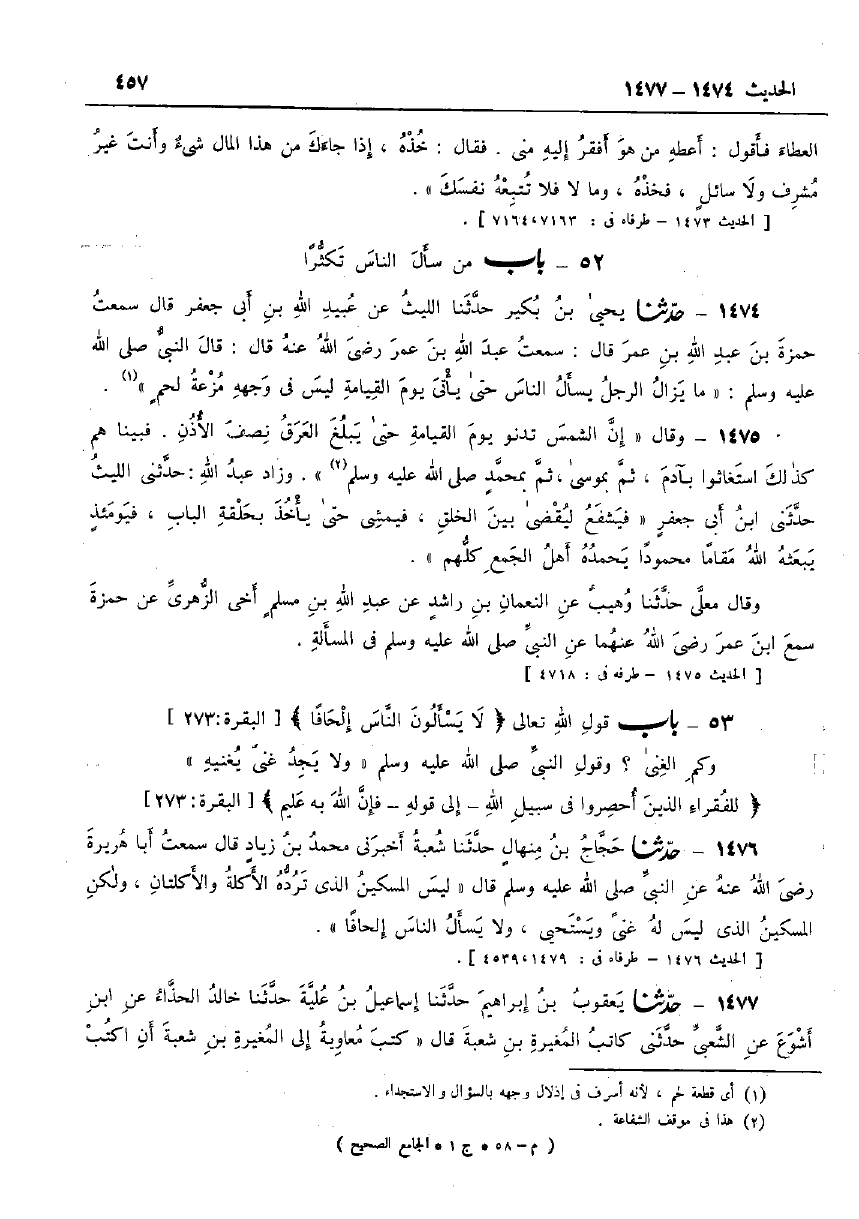 الحديث ١٤٧٤ – ١٤٧٧ ٤٥٧
العطاء فأقول : أَعطهِ من هوَ أَفقرُ إليهِ منى . فقال : خُذْهُ ، إذا جاءَكَ من هذا المال شىءٌ وأنتَ غيرُ
مُشرِف ولَا سائلٍ ، فخذْهُ ، وما لا فلا تُتبِعْهُ نفسَكَ » .
[ الحديث ١٤٧٣ – طرفاه فى : ٧١٦٣،٧١٦٤ ] .
٥٢ – باب من سأَلَ الناسَ تَكَثُّرًا
١٤٧٤ – حدّثنا يحيىٰ بنُ بُكير حدَّثَنا الليثُ عن عُبيدِ اللهِ بنِ أبى جعفر قال سمعتُ
حمزةَ بنَ عبدِ اللهِ بنِ عمرَ قال : سمعتُ عبدَ اللهِ بنَ عمرَ رضىَ اللهُ عنهُ قال : قالَ النبىُّ صلى الله
عليه وسلم : « ما يَزالُ الرجلُ يسأَلُ الناسَ حتىٰ يأْتىَ يومَ القِيامةِ ليسَ فى وَجههِ مُزْعةُ لحمٍ »(١) .
١٤٧٥ – وقال « إنَّ الشمسَ تدنو يومَ القيامةِ حتىٰ يَبلُغَ العَرَقُ نِصفَ الأُذُنِ . فبينا هم
كذٰلكَ استَغاثوا بـآدمَ ، ثمَّ بموسىٰ ، ثمَّ بمحمَّدٍ صلى الله عليه وسلم(٢) » . وزاد عبدُ اللهِ : حدَّثنى الليثُ
حدَّثَنى ابنُ أبى جعفرٍ « فيَشفَعُ ليُقْضىٰ بينَ الخلقِ ، فيمشِى حتىٰ يأْخُذَ بحَلْقةِ البابِ ، فيَومَئذٍ
يَبعَثهُ اللهُ مَقامًا محمودًا يَحمدُهُ أهلُ الجَمعِ كلُّهم » .
وقال معلَّى حدَّثَنا وُهيبٌ عنِ النعمانِ بنِ راشدٍ عن عبدِ اللهِ بنِ مسلمٍ أخى الزُّهرىِّ عن حمزةَ
سمعَ ابنَ عمرَ رضىَ اللهُ عنهُما عنِ النبىِّ صلى الله عليه وسلم فى المسأَلةِ .
[ الحديث ١٤٧٥ – طرفه فى : ٤٧١٨ ]
٥٣ – باب قولِ اللهِ تعالى ﴿ لَا يَسْأَلُونَ النَّاسَ إِلْحَافًا ﴾ [ البقرة:٢٧٣ ]
وكم الغِنىٰ ؟ وقولِ النبىِّ صلى الله عليه وسلم « ولا يَجِدُ غنىً يُغنيهِ »
﴿ للفُقراء الذينَ أُحصِروا فى سبيلِ اللهِ – إلى قولهِ – فإنَّ اللهَ به عَليم ﴾ [ البقرة:٢٧٣]
١٤٧٦ – حدّثنا حَجَّاجُ بنُ مِنهالٍ حدَّثَنا شُعبةُ أخبرَنى محمدُ بنُ زيادٍ قال سمعتُ أبا هُريرةَ
رضىَ اللهُ عنهُ عنِ النبىِّ صلى الله عليه وسلم قال « ليسَ المسكينُ الذى تَرُدُّهُ الأكلةُ والأكلتانِ ، ولٰكنِ
المسكينُ الذى ليسَ لهُ غنىً ويَسْتَحيى ، ولا يَسأَلُ الناسَ إلحافًا » .
[ الحديث ١٤٧٦ – طرفاه فى : ١٤٧٩،٤٥٣٩ ] .
١٤٧٧ – حدّثنا يَعقوبُ بنُ إبراهيمَ حدَّثَنا إسماعيلُ بنُ عُليَّةَ حدَّثَنا خالدُ الحذَّاءُ عنِ ابنِ
أَشْوَعَ عنِ الشَّعبىِّ حدَّثَنى كاتبُ المُغيرةِ بنِ شعبةَ قال « كتبَ مُعاويةُ إلى المُغيرةِ بنِ شعبةَ أنِ اكتُبْ
(١) أى قطعة لحم ، لأنه أسرف فى إذلال وجهه بالسؤال والاستجداء .
(٢) هذا فى موقف الشفاعة .
( م – ٥٨ * ج ١ * الجامع الصحيح )